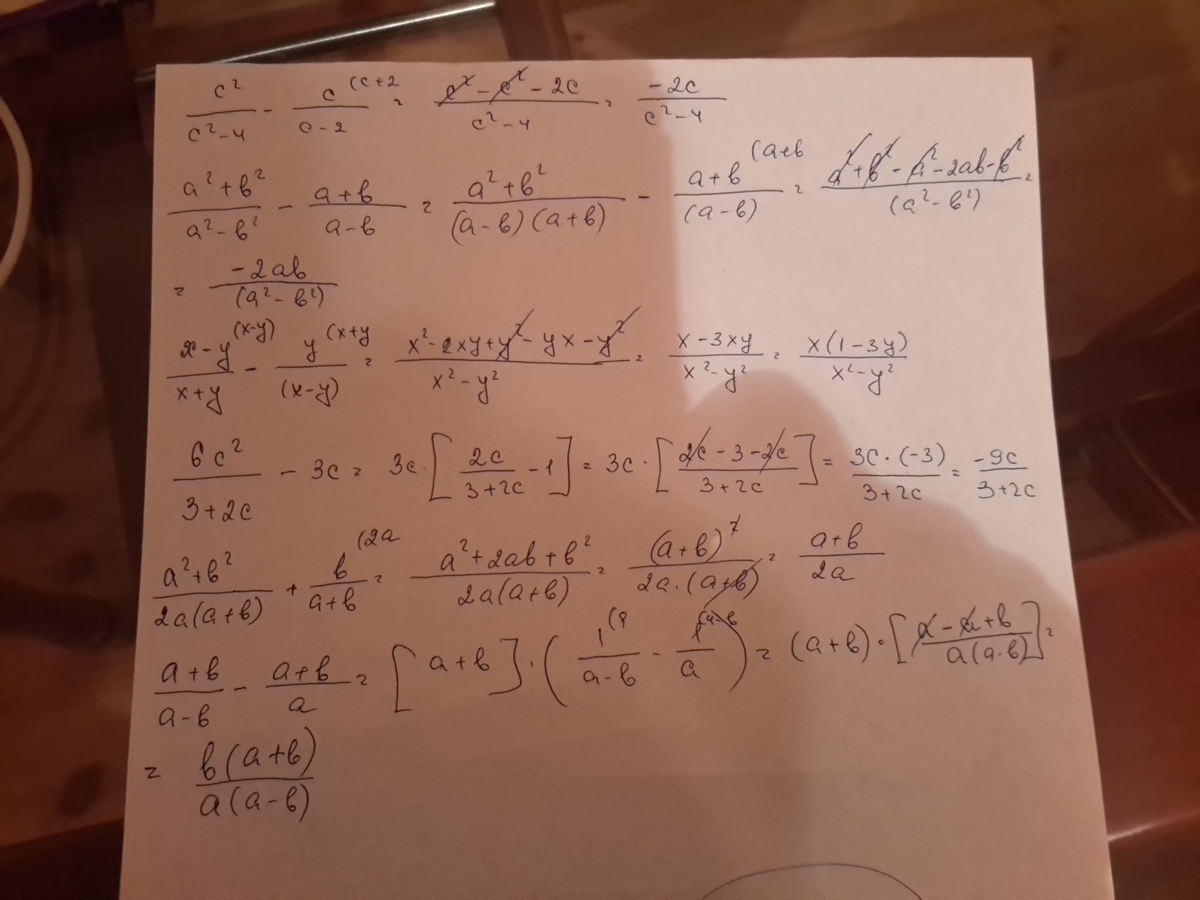 c²/(c²-4) - c/(c-2) (c+2 = (c²-c²-2c)/(c²-4) = -2c/(c²-4)
(a²+в²)/(a²-в²) - (a+в)/(a-в) = (a²+в²)/((a-в)(a+в)) - (a+в)/(a-в) (a+в = (a²+в²-a²-2aв-в²)/(a²-в²) =
= -2aв/(a²-в²)
(x-y)/(x+y) (x-y) - y/(x-y) (x+y = (x²-2xy+y²-yx-y²)/(x²-y²) = (x-3xy)/(x²-y²) = x(1-3y)/(x²-y²)
6c²/(3+2c) - 3c = 3c·[2c/(3+2c) - 1] = 3c·[(2c-3-2c)/(3+2c)] = 3c·(-3)/(3+2c) = -9c/(3+2c)
(a²+в²)/(2a(a+в)) + в/(a+в) (2a = (a²+2aв+в²)/(2a(a+в)) = (a+в)²/(2a·(a+в)) = (a+в)/2a
(a+в)/(a-в) - (a+в)/a = [a+в]·(1/(a-в) (a - 1/a (a-в) = (a+в)·[(a-a+в)/(a(a-в))] =
= в(a+в)/(a(a-в))